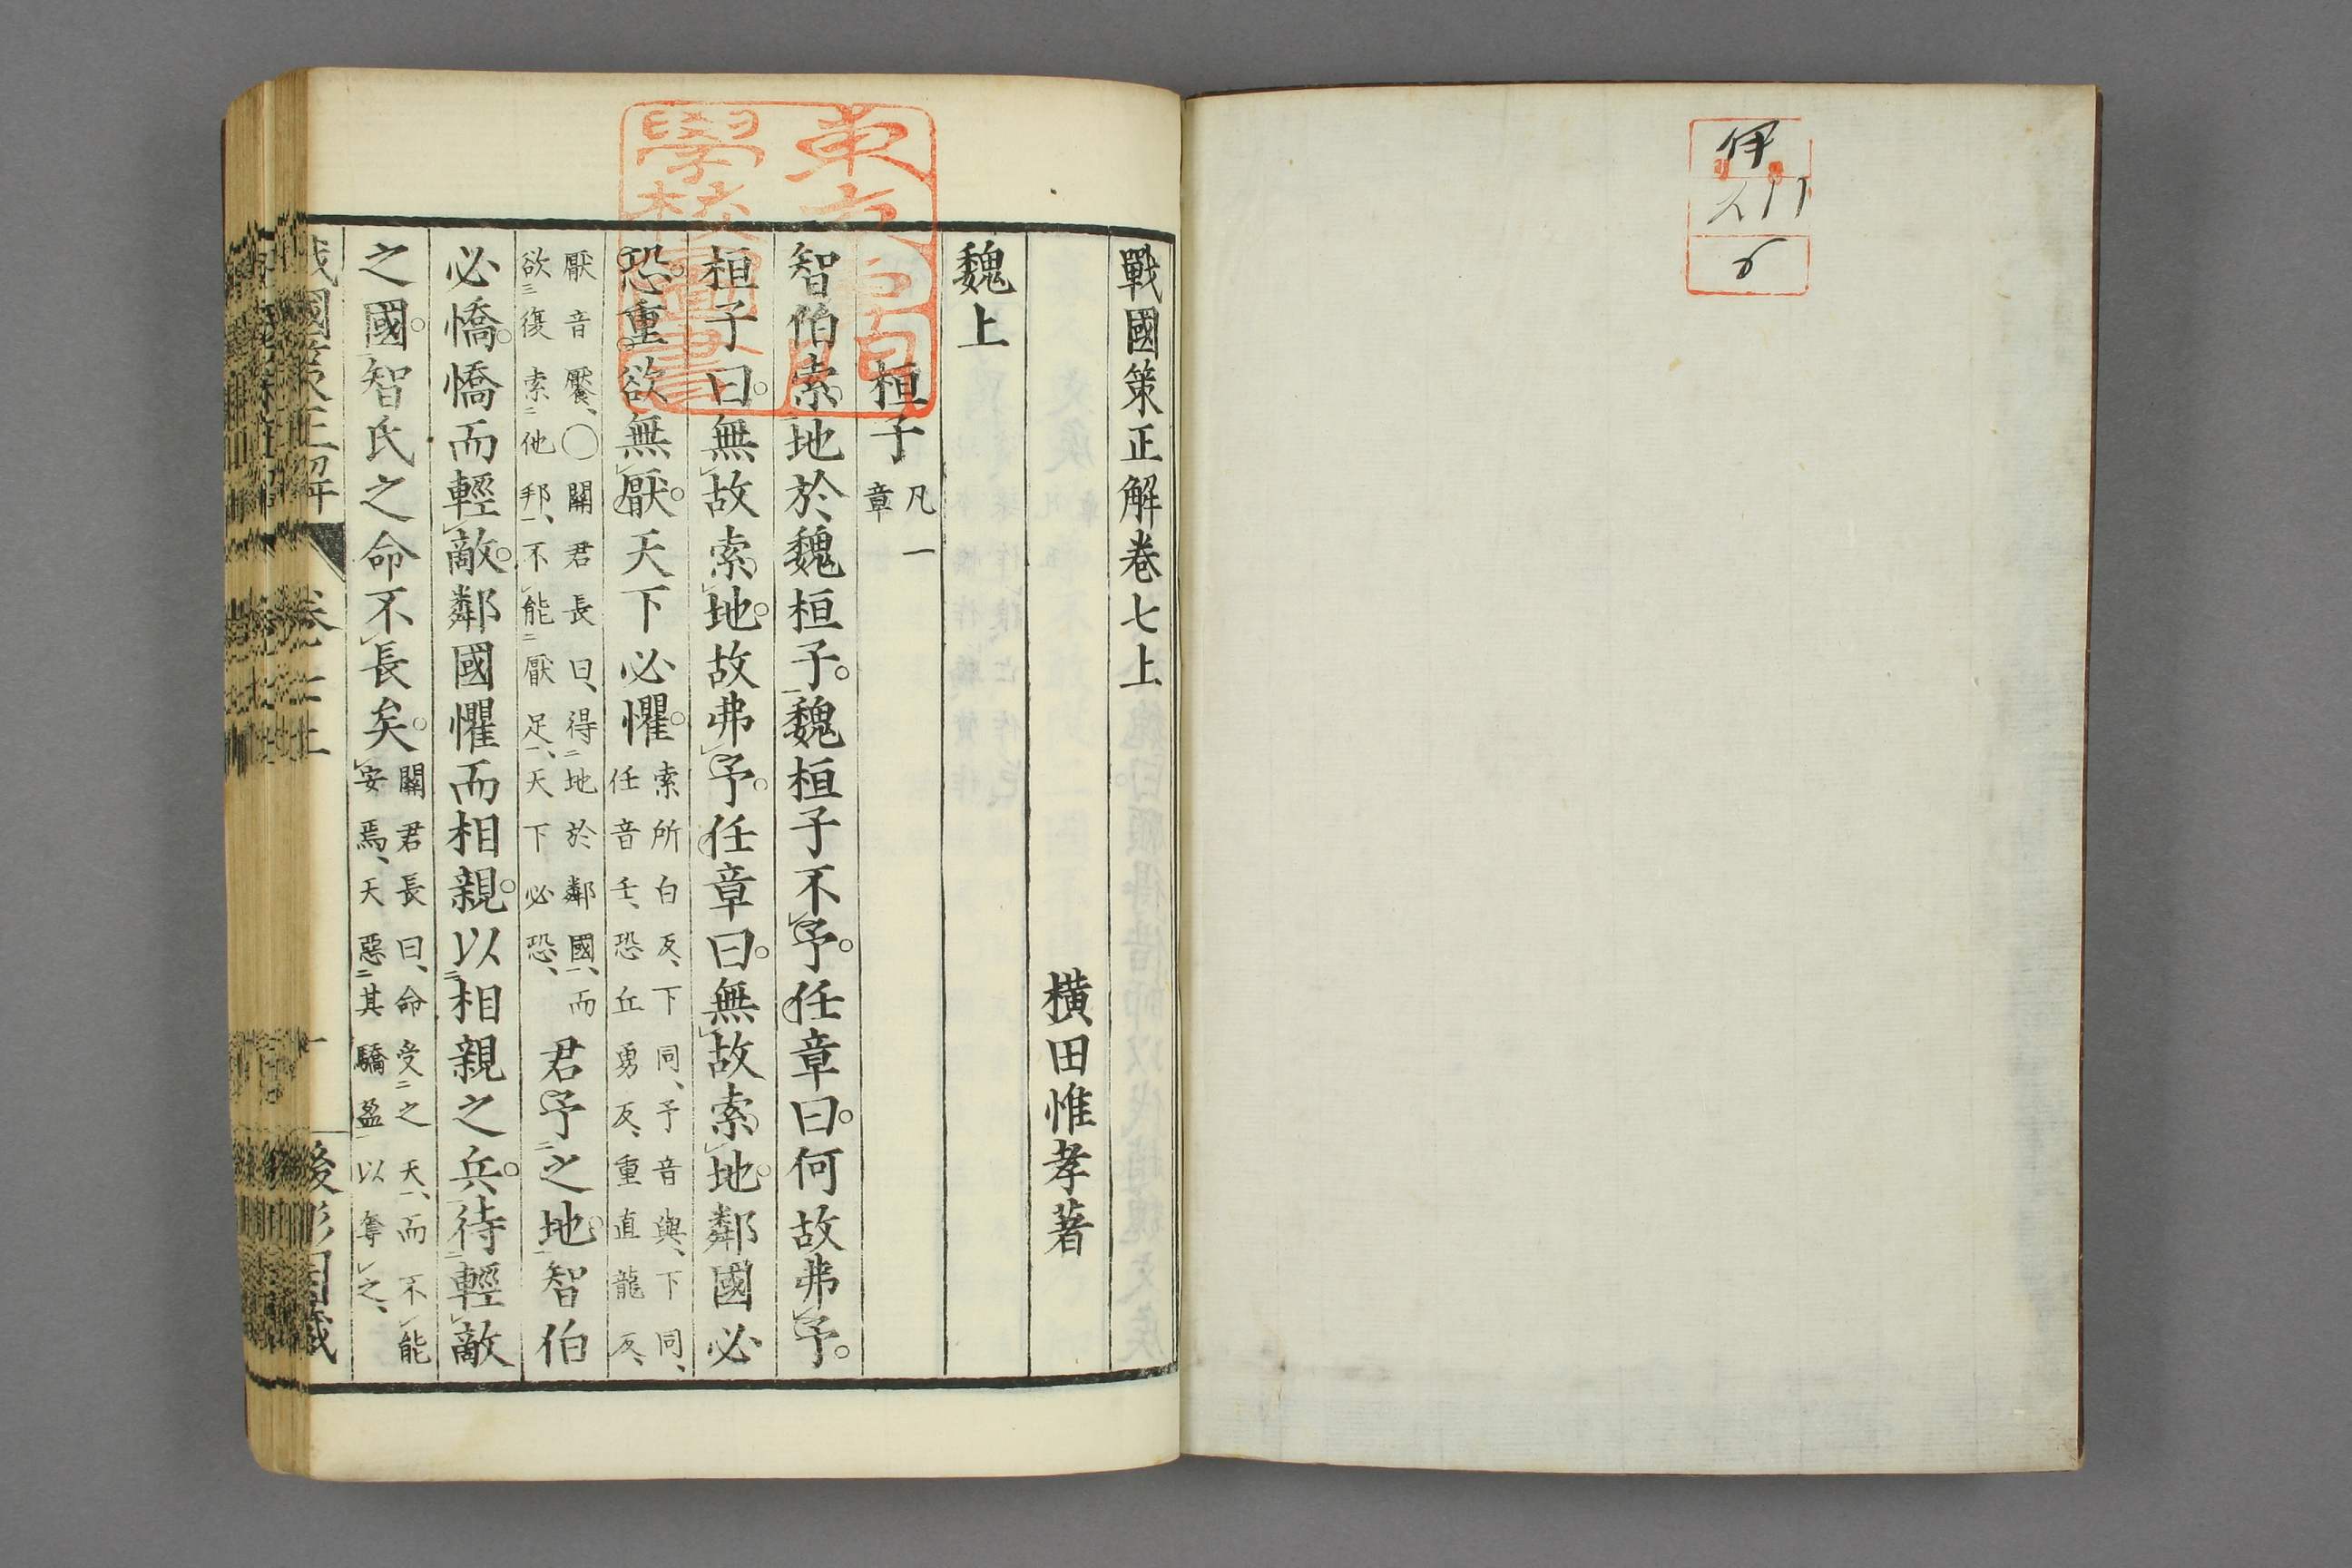 伊
211
6
戰國策正解卷七上
橫田惟孝著
魏上
桓子凡一章
智伯索地於魏桓子。魏桓子不予。任章曰。何故弗予。
桓子曰。無故索地。故弗予。任章曰。無故索地。鄰國必
恐。重欲無厭。天下必懼。索所白反、下同、予音與、下同、
任音壬、恐丘勇反、重直龍反、
厭音饜、○關君長曰、得二地於鄰國一、而
欲三復索二他邦一、不能二厭足一、天下必恐、君予二之地。智伯
必憍。憍而輕敵。鄰國懼而相親。以二相親之兵。待輕敵
之國。智氏之命不長矣。關君長曰、命受二之天一、而不能
安焉、天惡二其驕盈以奪之、
戰國策正解 卷七上 一
東京專門
學校圖書